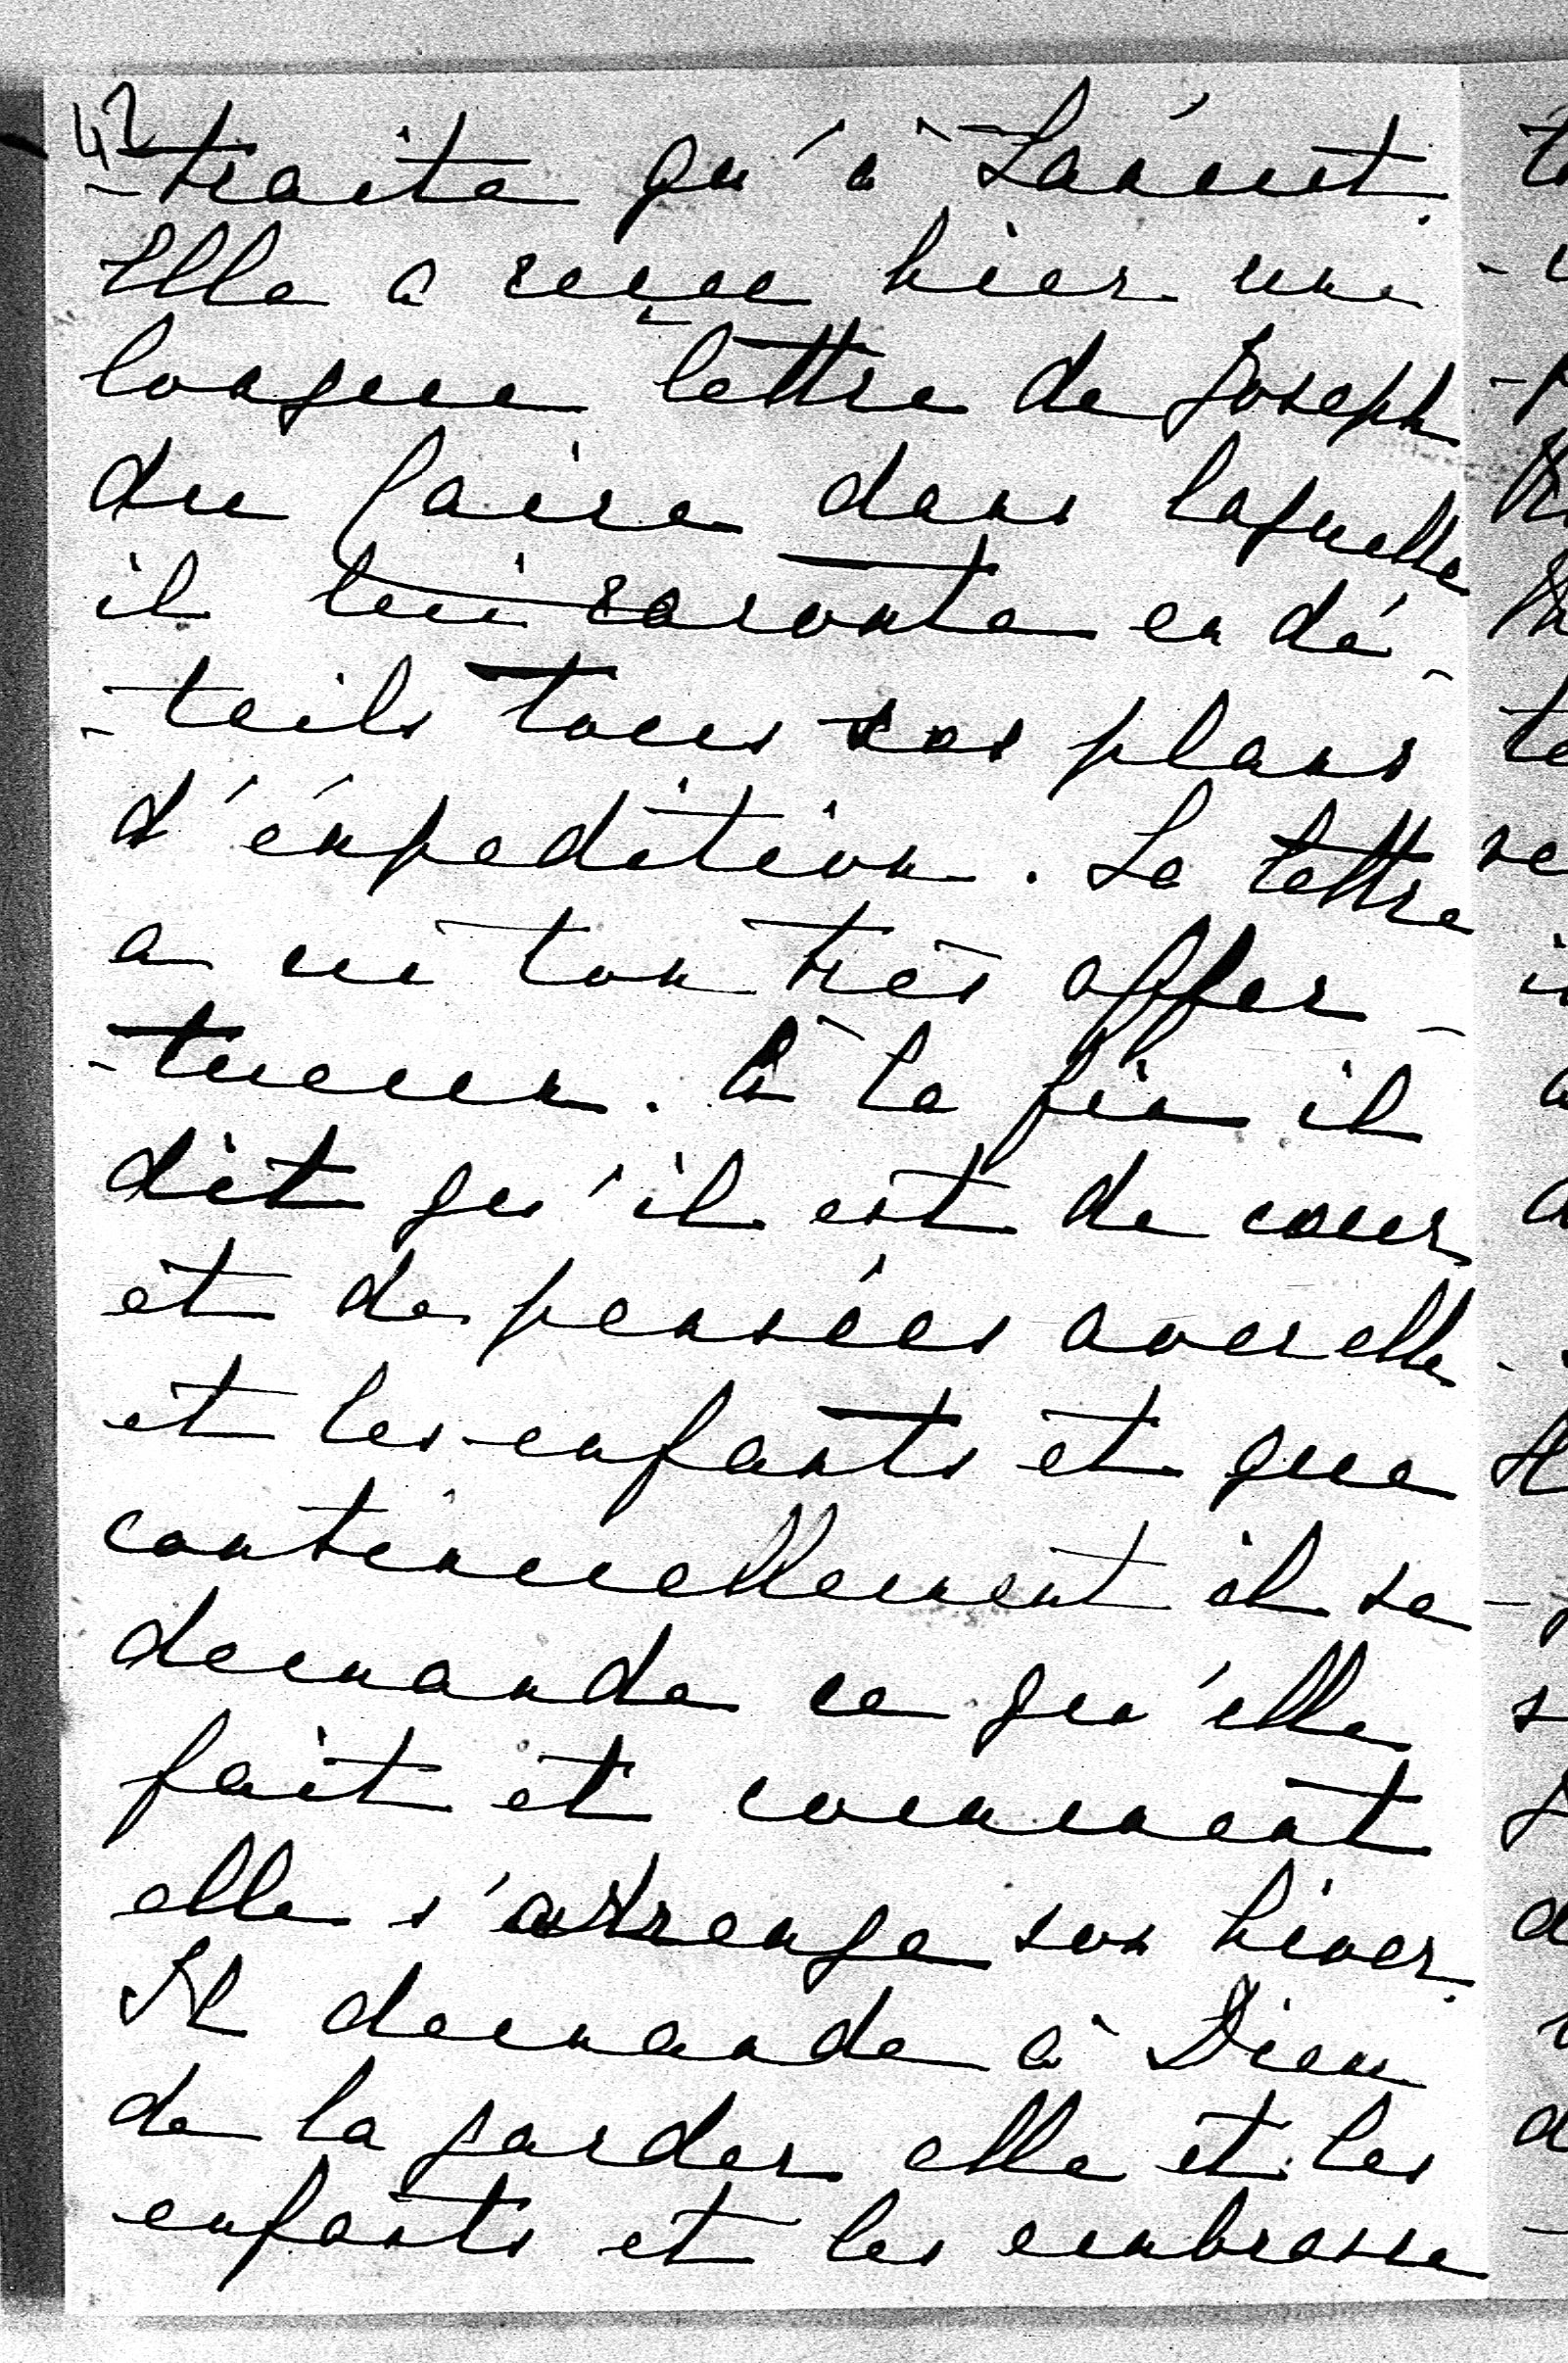 42
-traite qu'à Lanvent.
Elle a reçue hier une
longue lettre de Joseph
du Paire dans laquelle
il lui raconte en dé-
-tails tous ses plans
d'éxpédition. La lettre
a un ton très affec-
-tueux. À la fin il
dit qu'il est de coeur
et de pensées avec elle
et les enfants et que
continuellement il se
demande ce qu'elle
fait et comment
elle s'arrange son hiver.
Il demande à Dieu
de la garder elle et les
enfants et les embrasse